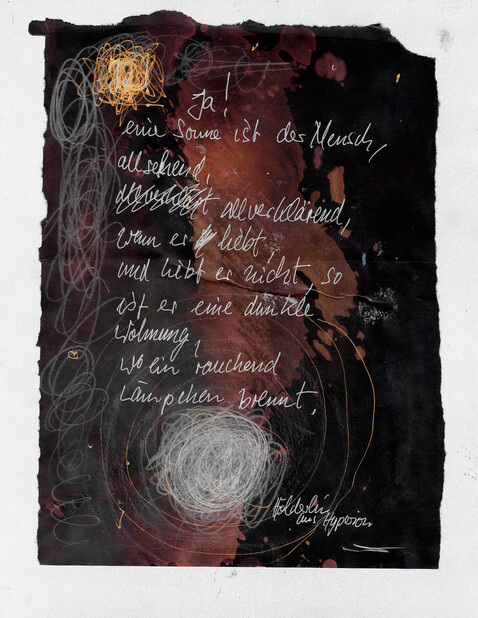 Ja!
eine Sonne ist der Mensch,
allsehend,
allverklärend,
wenn er liebt,
und liebt er nicht, so
ist er eine dunkle
Wohnung,
wo ein rauchend
Lämpchen brennt.
Hölderlin
aus Hyperion